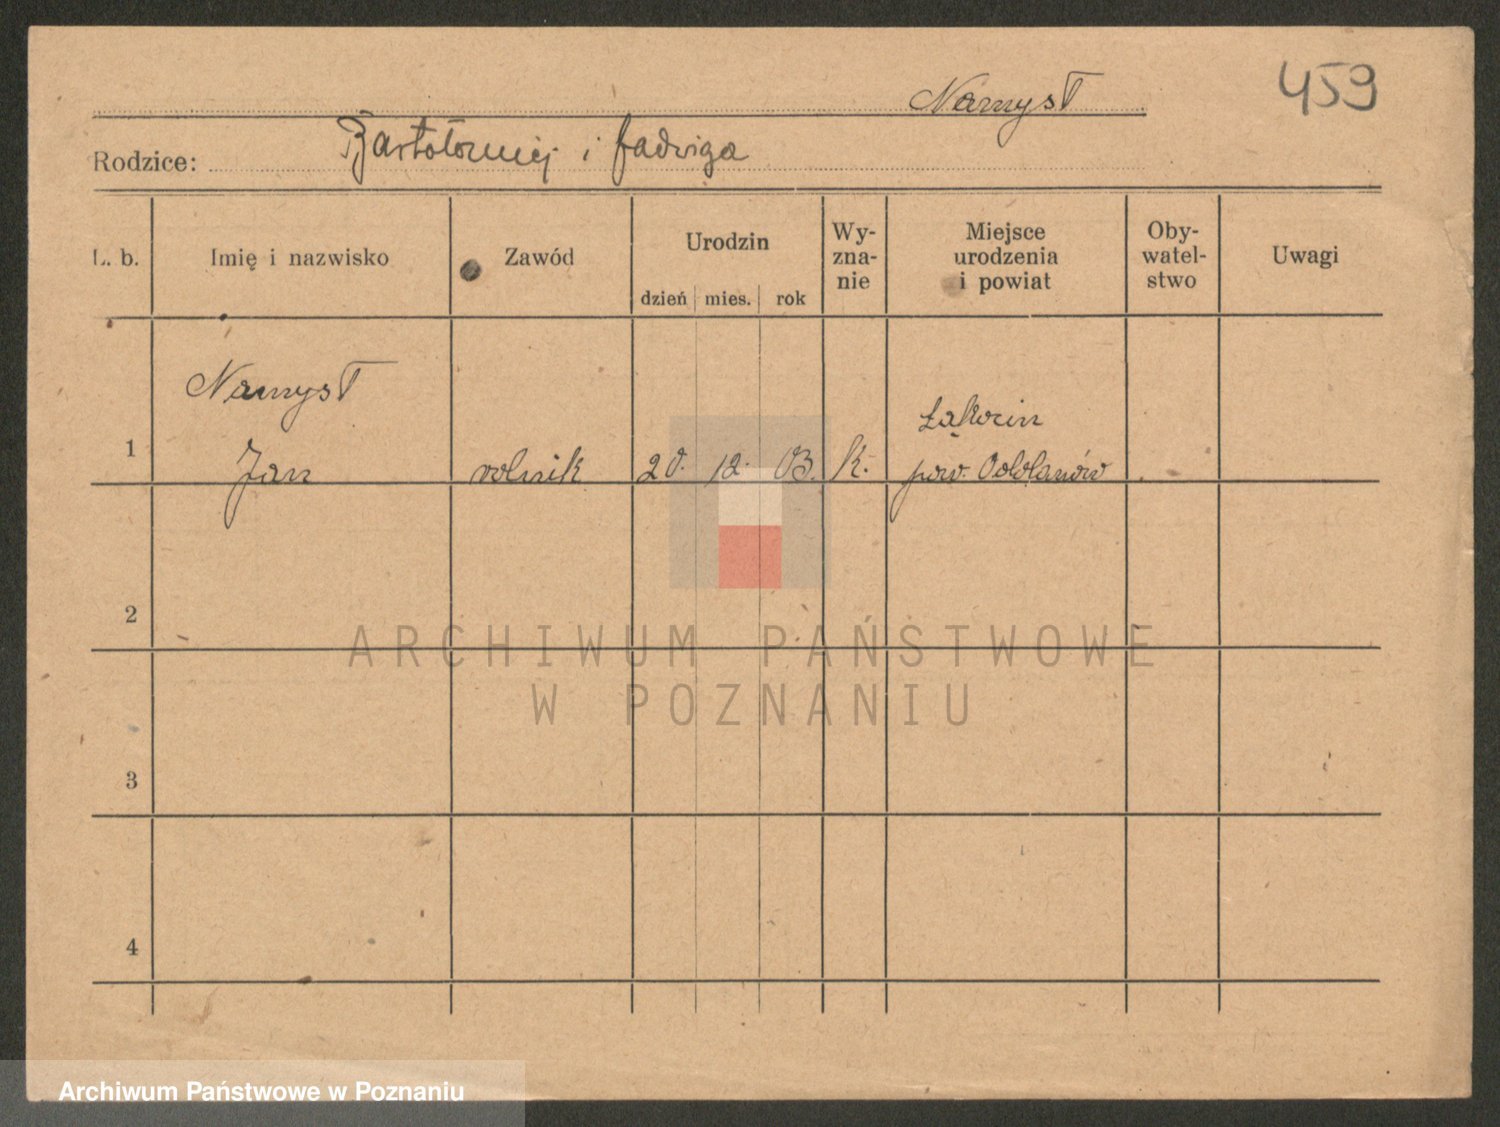 Namysł
459
Rodzice: Bartołomiej i Jadwiga
L. b.
Imię i nazwisko
Zawód
Urodzin
dzień mies. rok
Wy-
zna-
nie
Miejsce
urodzenia
i powiat
Oby-
watel-
stwo
Uwagi
Namysł
1 Jan rolnik 20. 12. 03. k.
Łąkocin
pow. Odolanów
2
3
4
ARCHIWUM PAŃSTWOWE
W POZNANIU
Archiwum Państwowe w Poznaniu